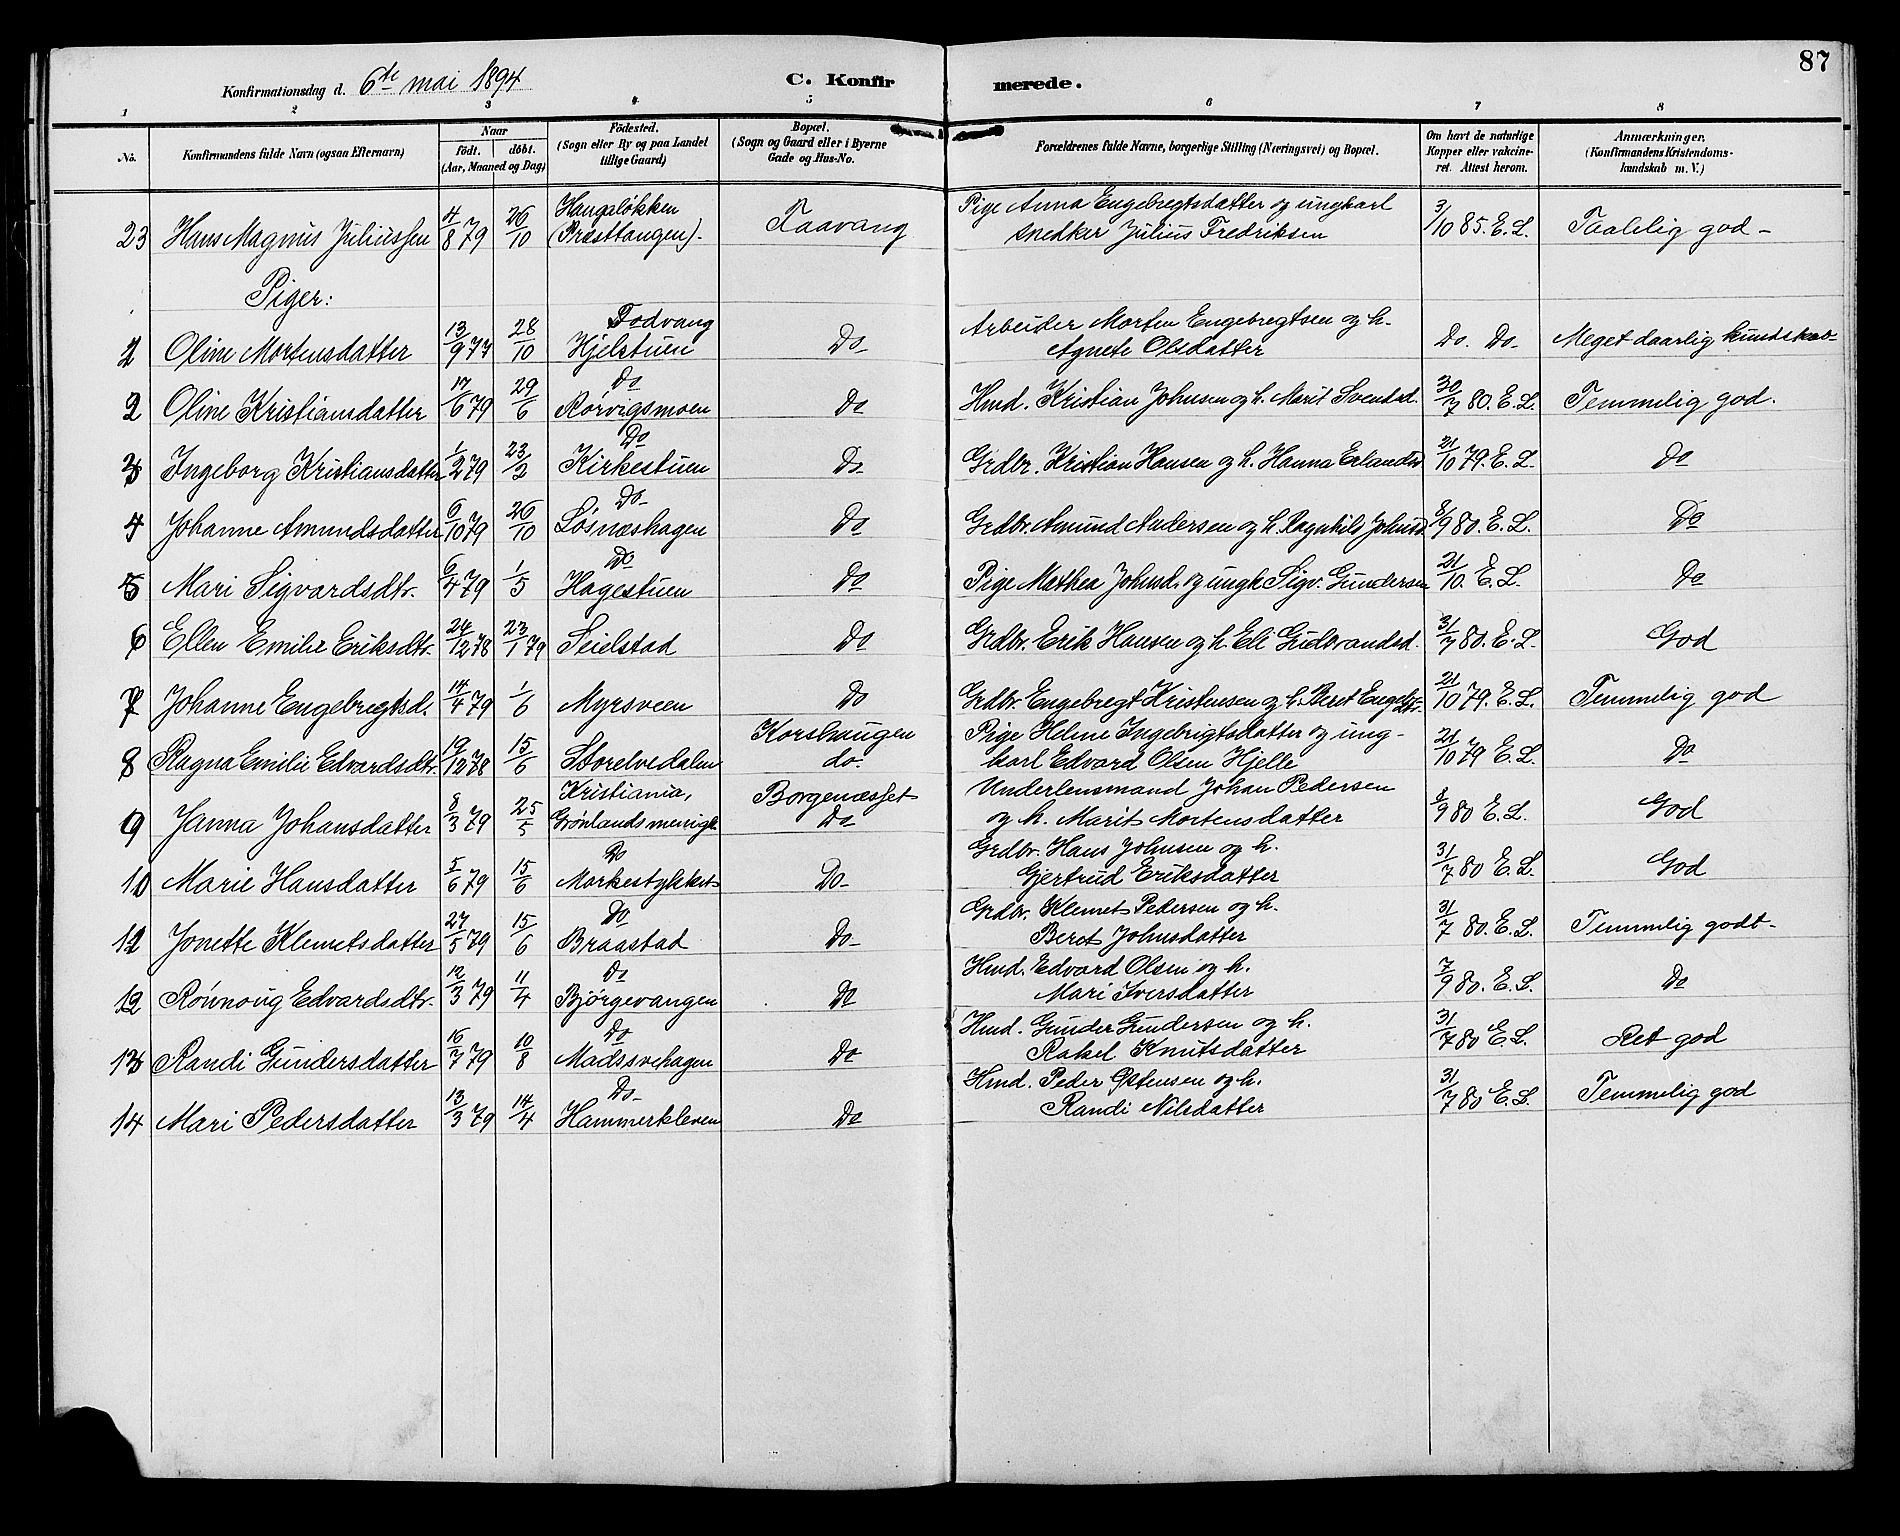 87
Konfirmationsdag d. 6te mai 1894
C. Konfirmerede.
1 2 3 4 5 6 7 8
No. Konfirmandens fulde Navn (ogsaa Efternavn) Naar født. døbt. (Aar, Maaned og Dag) Fødested. (Sogn eller By og paa Landet tillige Gaard) Bopæl. (Sogn og Gaard eller i Byerne Gade og Hus-No. Forældrenes fulde Navne, borgerlige Stilling (Næringsvei) og Bopæl. Om havt de naturlige Kopper eller vakcineret. Attest herom. Anmærkninger. (Konfirmandens Kristendomskundskab m. V.)
23 Hans Magnus Juliussen 4/8 79 26/10 Haugsløkken (Præsttangen). Faavang Pige Anna Engebregtsdatter og ungkarl
snedker Julius Fredriksen 3/10 85. E. L. Taalelig god
Piger:
1 Oline Mortensdatter 13/9 77 28/10 Fodvang Hjelstuen Do Arbeider Morten Engebregtsen og h.
Agnete Olsdatter Do. Do Meget daarlig kundskab
2 Oline Kristiansdatter 17/6 79 29/6 Do Rørvigsmoen Do Hmd. Kristian Johnsen og h. Marit Svensd. 30/7 80. E. L. Temmelig god.
3 Ingeborg Kristiansdatter 1/2 79 23/2 Do Kirkestuen Do Grdbr. Kristian Hansen og h. Hanna Erlandsd. 21/10 79. E. L. Do
4 Johanne Amundsdatter 6/10 79 26/10 Do Løsnæshagen Do Grdbr. Amund Andersen og h. Ragnhild Johnsd. 8/9 80. E. L. Do
5 Mari Sigvardsdtr. 6/4 79 1/5 Do Hagestuen Do Pige Mathea Johnsd. og ungk Sigv. Gundersen 21/10. E. L. Do
6 Ellen Emilie Eriksdtr. 24/12 78 23/1 79 Seielstad Do Grdbr. Erik Hansen og h. Eli Gudbrandsd. 31/7 80. E. L. God
7 Johanne Engebregtsd. 14/4 79 1/6 Myrsveen Do Grdbr. Engebregt Kristensen og h. Beret Engebr. 21/10 79. E. L. Temmelig god
8 Ragna Emilie Edvardsdtr. 19/12 78 15/6 Storelvedalen Korshaugen do. Pige Helene Ingebrigtsdatter og ung-
karl Edvard Olsen Hjelle 21/10 79 E. L. Do
9 Janna Johansdatter 8/3 79 25/5 Kristiania, Grønlands menigh. Borgenæsset Do Underlensmand Johan Pedersen
og h. Marit Mortensdatter 8/9 80 E. L. God
10 Marie Hansdatter 5/6 79 15/6 Do Morkestykket Do Grdbr. Hans Johnsen og h.
Gjertrud Eriksdatter 31/7 80 E. L. God
11 Jonette Klemetsdatter 27/5 79 15/6 Do Braastad Do Grdbr. Klemet Pedersen og h.
Beret Johnsdatter 31/7 80. E. L. Temmelig godt
12 Rønnoug Edvardsdtr. 12/3 79 11/4 Do Bjørgevangen Do Hmd. Edvard Olsen og h.
Mari Iversdatter 7/9 80. E. L. Do
13 Randi Gundersdatter 16/7 79 10/8 Do Madssvehagen Do Hmd. Gunder Gundersen og h.
Rakel Knutsdatter 31/7 80 E. L. Ret god
14 Mari Pedersdatter 13/3 79 14/4 Do Hammerkleven Do Hmd. Peder Østensen og h.
Randi Nilsdatter 31/7 80 E. L. Temmelig god